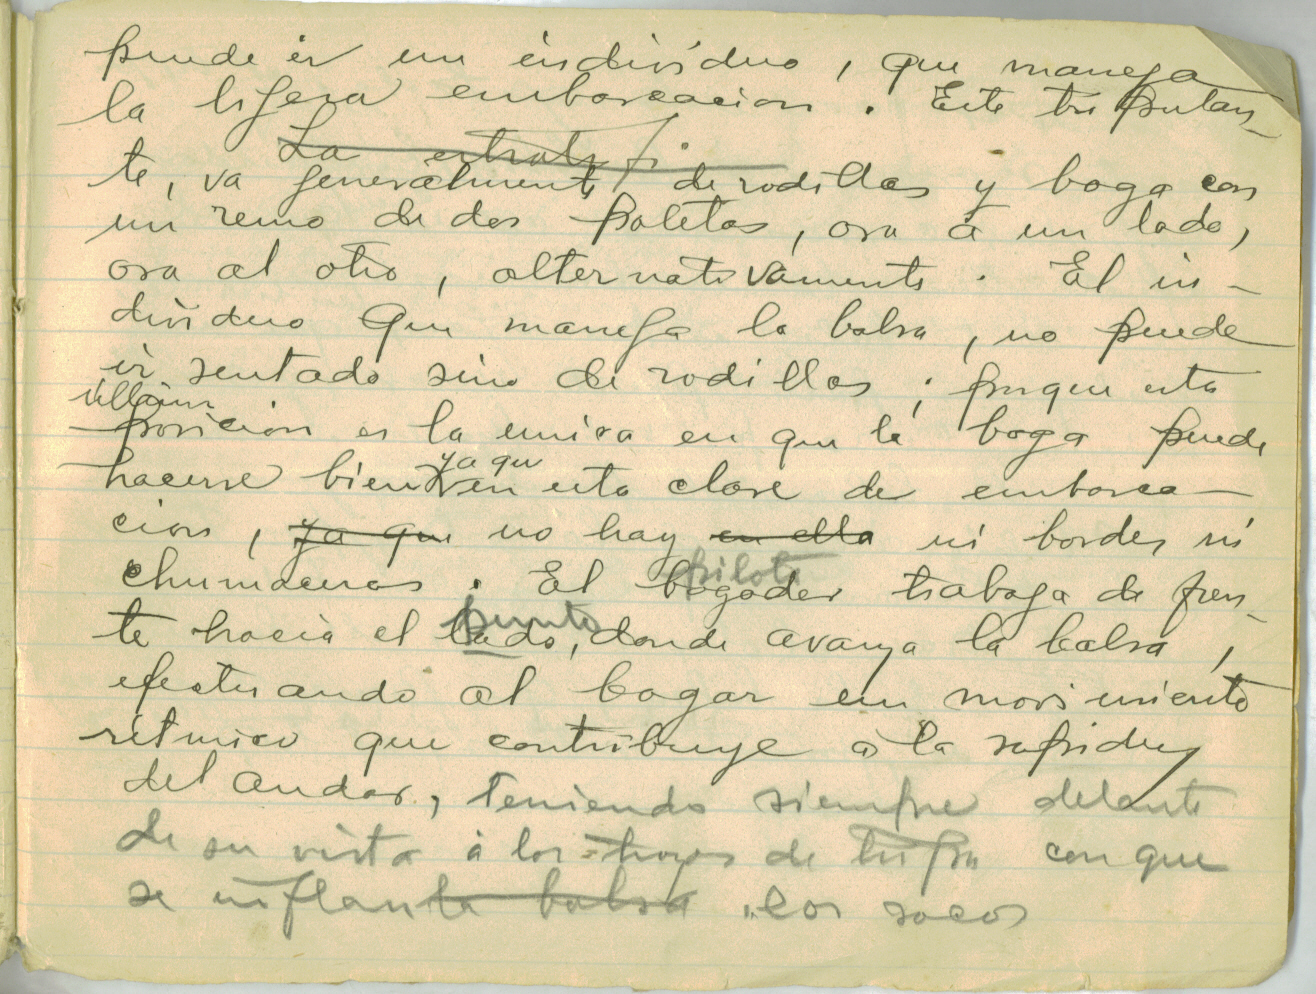 puede ir un individuo, que maneja
la lijera embarcacion. Este tripulan-
La estratefi
te, va generalmente de rodillas y boga con
un remo de dos paletas, ora á un lado,
ora al otro, alternativamente. El in-
dividuo que maneja la balsa, no puede
ir sentado sino de rodillas; porque esta
última
posicion es la unica en que la boga puede
ya que
hacerse bien en esta clase de embarca-
cion, ya que no hay en ella ni bordes ni
chumaceras. El bogador trabaja de fren-
piloto
punto
te hacia el lado, donde avanza la balsa,
efectuando al bogar un movimiento
rítmico que contribuye á la rapidez
del andar, teniendo siempre delante
de su vista á los trozos de tripa con que
se inflan la balsa los sacos